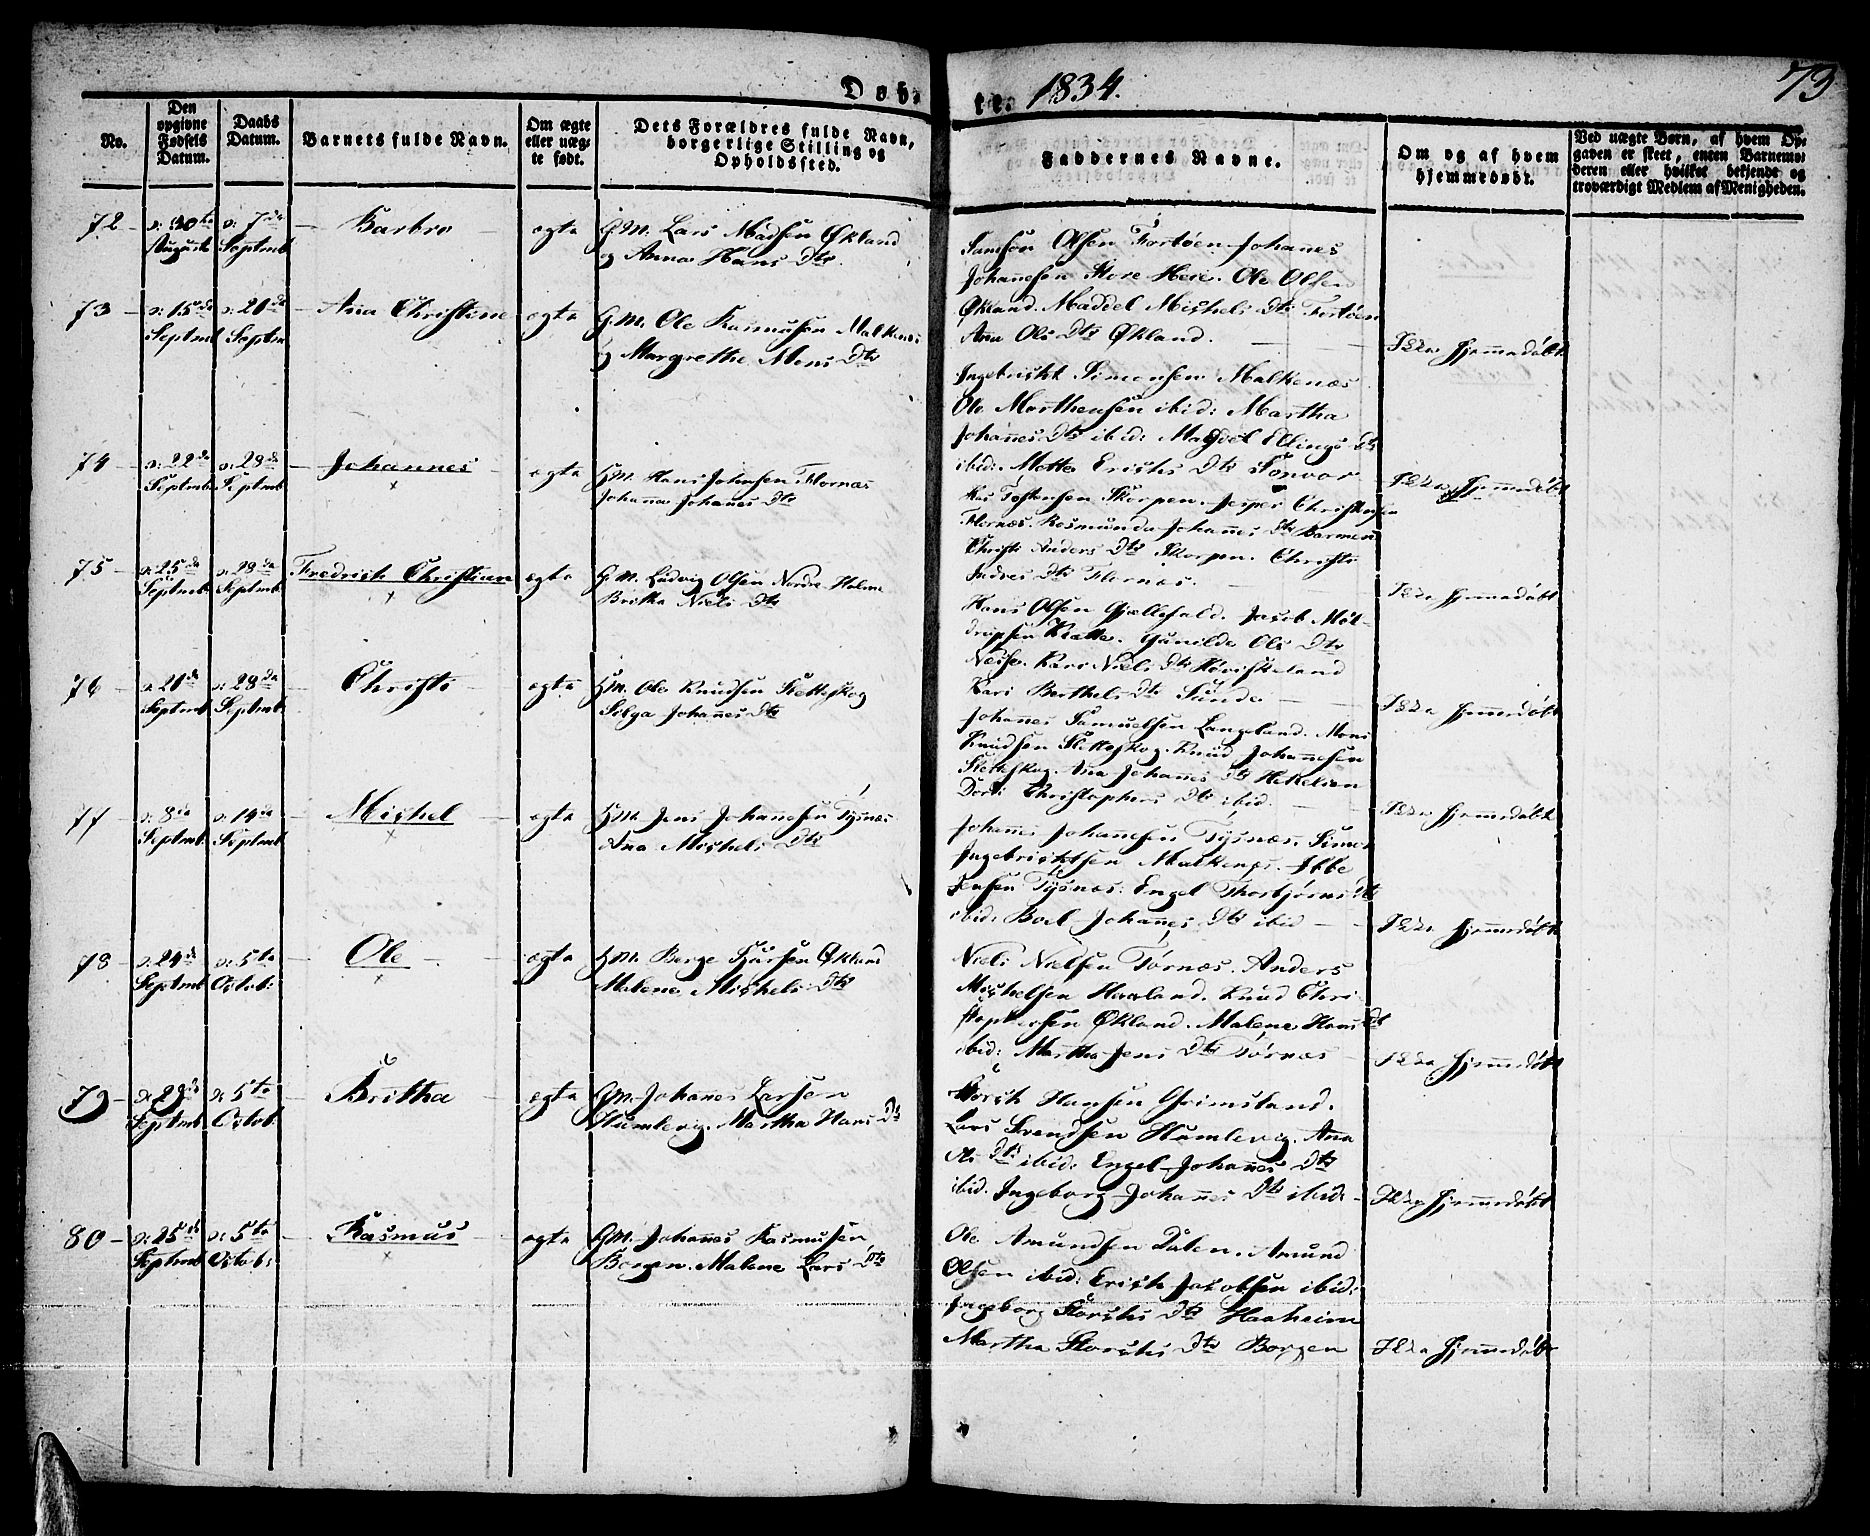 Døb- te. 1834. 73
No.
Den opgivne Fødsels Datum.
Daabs Datum.
Barnets fulde Navn.
Om ægte eller uæg- te født.
Dets Forældres fulde Navn, borgerlige Stilling og Opholdssted.
Faddernes Navne.
Om og af hvem hjemmedøbt.
Ved uægte Børn, af hvem Op- gaven er skeet, enten Barnemo- deren eller hvilket bekjendt og troværdigt Medlem af Menigheden.
72 d: 30te August d: 7de Septmb Barbro ægte
G.M. Lars Madsen Økland
og Anna Hans Dtr.
Samson Olsen Tortøen Johanes
Johannesen Store Here. Ole Olsen
Økland. Maddel Michels Dtr Tortøen
Ana Ols Dtr Økland. Ikke hjemmedøbt
73 d: 15de Septmb d: 21de Septm Ana Christine ægte
G.M. Ole Rasmusen Malkenes
og Margrethe Mons Dtr
Ingebricht Simensen Malkenæs
Ole Morthensen ibid: Martha
Johannes Dtr ibid: Magdel Ellings Dtr
ibid: Mette Erichs Dtr Ikke hjemmedøbt
74 d: 22de Septmb d: 28de Septmb Johannes ægte
G.M. Hans Johnsen Flornæs
Johanna Johanes Dtr
Tostensen Skorpen. Jesper Christensen
Flornæs. Rosmunda Johannes Dtr Barmen
Christi Anders Dtr Skorpen. Christi
Andres Dtr Flornæs. Ikke hjemmedøbt
75 d: 25de Septmb d: 28de Septmb Fredrich Christian ægte
G.M. Ludvig Olsen Nordre Holme
Britha Niels Dtr
Hans Olsen Gjællefald. Jacob
Gunilde Ols Dtr
Næsse. Kari Niels Dtr
Kari Berthels Dtr Sunde Ikke hjemmedøbt
76 d: 21de Septmb d: 28de Septmb Christi ægte
G.M. Ole Knudsen Sletteskog
Sølga Johanes Dtr
Johannes Samuelsen Langeland. Mons
Knudsen Sletteskog. Knud Johannesen
Sletteskog. Ana Johanes Dtr
Dorti Christophers Dtr ibid. Ikke hjemmedøbt
77 d: 8de Septmb d: 14de Septmb Michel ægte
G.M. Jens Johannesen Tysnæs
Ana Michels Dtr
Johannes Johannesen Tysnæs. Simen
Ingebrichtsen Malkenes. Ebbe
Jensen Tysnæs. Engel Thorbjørns Dtr
ibid: Boel Johannes Dtr ibid Ikke hjemmedøbt
78 d: 24de Septmb d: 5te Octob: Ole ægte
G.M. Berge Økland
Malene Michels Dtr
Niels Nielsen Tørnæs. Anders
Michelsen Haaland. Knud Chri-
stophersen Økland. Malene Hans Dtr
ibid: Martha Jens Dtr Tørnæs Ikke hjemmedøbt
79 d: 29de Septmb d: 5te Octob. Britha ægte
G.M. Johanes Larsen
Humlevig. Martha Hans Dtr
Hansen Grimsland.
Lars Svendsen Humlevig. Ana
Ols Dtr ibid: Engel Johanes Dtr
ibid. Ingeborg Johannes Dtr ibid: Ikke hjemmedøbt
80 d: 25de Septmb d: 5te Octob: Rasmus ægte
G.M. Johannes Rasmusen
Borgen. Malene Lars Dtr
Ole Amundsen Dalen. Amund
Olsen ibid: Erich Jacobsen ibid:
Ingeborg Dtr Haaheim
Martha Dtr Borgen Ikke hjemmedøbt